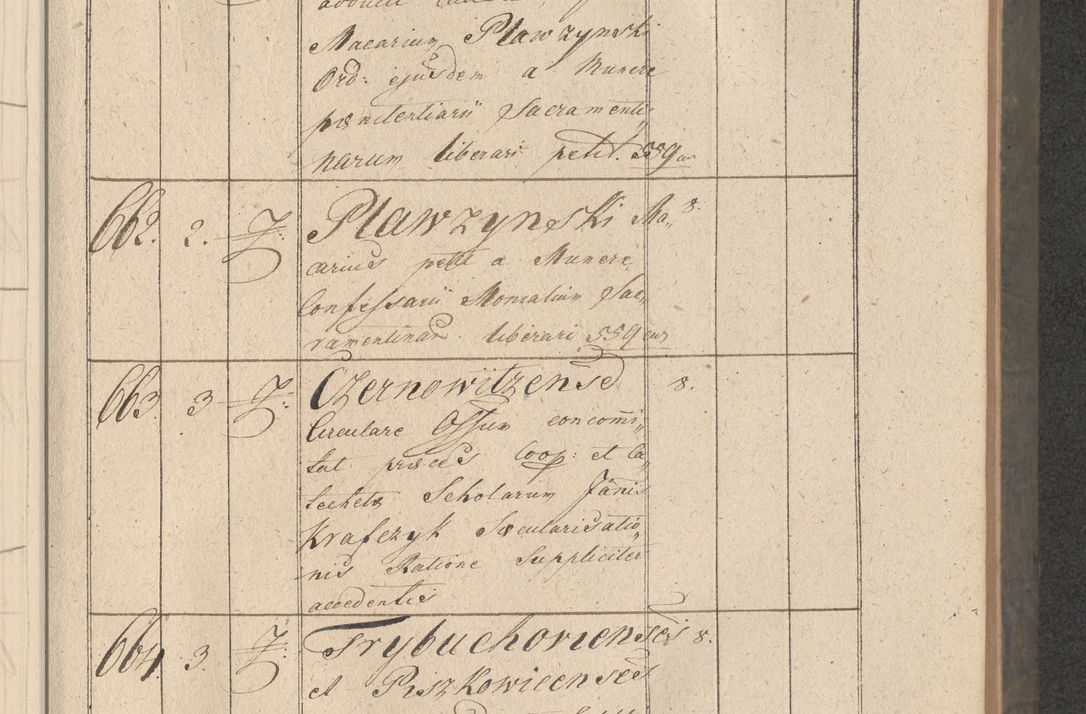 Macarium Plawzynski
Ord: ejusdem a Munere
pœnitentiarii Sacramenti„
narum liberari petit. 559
662. 2. 7: Plawzynski Ma„ 8.
carius petit a Munere
Confessarii Monialium Sac„
ramentinar. liberari 559
663. 3 7: Czernowitzense 8.
Circulare Offum concomi„
tat preces Coop: et Ca„
techetæ Scholarum Jänis
Krafczyk Sæcularisatio„
nis Ratione Suppliciter
accedentis
664. 3. 7: Trybuchoviensis 8.
et Piszkowicenses